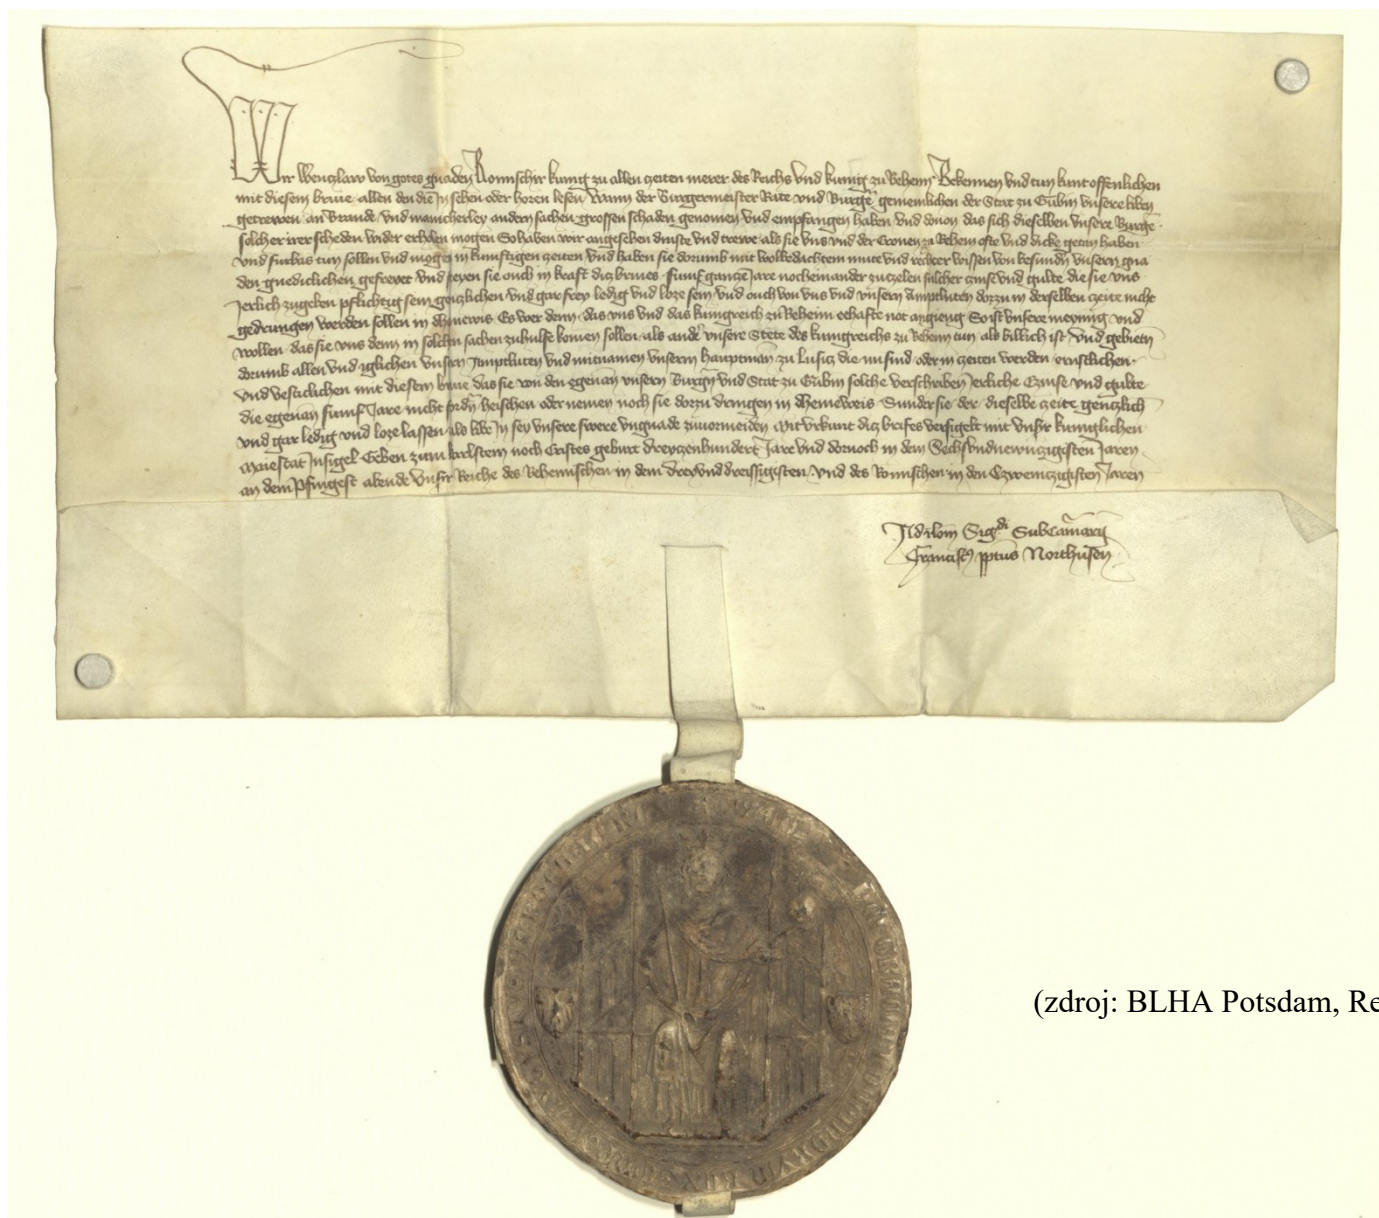 Wir Wenczlaw von gotes gnaden Romischer kunig zu allen zeiten merer des Reichs vnd kunig zu Behem Bekennen vnd tun kunt offenlichen
mit diesem briue allen den die In sehen oder horen lesen Wann der Burgermeister Rate vnd Burg̃e gemeinlichen der Stat zu Gubin vnsere liben
getrewen an brande vnd manicherley andern sachen grossen schaden genomen vnd empfangen haben vnd douon das sich dieselben vnsere Burg̃e
solcher irer scheden wider erholen mogen So haben wir angesehen dinste vnd trewe als sie vns vnd der Cronen zu Behem ofte vnd dicke getan haben
vnd furbas tun sollen vnd mogen in kunftigen zeiten vnd haben sie dorumb mit wolbedachtem mute vnd rechter wissen von besundn̄ vnsern gna
den gnediclichen gefreyet vnd freyen sie ouch in kraft dicz briues funf gancze Jare nocheinander zuczelen solcher czinse vnd gulte die sie vns
Jerlich zugeben pflichtig sein genczlichen vnd gar frey ledig vnd loze sein vnd ouch von vns vnd vnsern Amptluten dorzu in derselben zeite nicht
gedrungen werden sollen in dheinewis Es wer denn das vns vnd das kunigreich zu Behem ehafte not angieng So ist vnsere meynung vnd
wollen das sie vns denn in solchen sachen zuhulfe komen sollen als and̕ vnsere Stete des kunigreichs zu Behem tun als billich ist vnd gebieten
dorumb allen vnd iglichen vnsern Amptluten vnd mitnamen vnserm hauptman zu Lusicz die nu sind oder in zeiten werden ernstlichen
vnd vesticlichen mit diesem briue das sie von den egenan̄ vnsern Burgn̄ vnd Stat zu Gubin solche verschriben Jerliche Czinse vnd gulte
die egenan̄ funf Jare nicht fordn̄ heischen oder nemen noch sie dorzu dringen in dheineweis Sunder sie der dieselbe zeite genczlich
vnd gar ledig vnd loze lassen als libe In sey vnsere swere vngnade zuuormeiden Mit vrkunt dicz briefs versigelt mit vnsr̄ kuniglichen
Maiestat Insigel Geben zum karlstein noch Cristes geburt dreyczenhundert Jare vnd dornoch in dem Sechsvndnewnczigisten Jaren
an dem Pfingest abende vnsr̄ Reiche des Behemischen in dem drey vnd dreissigisten vnd des Romischen in den Czwenczigisten Jaren
Ad r̄lom̄ Sigdi Subcam̄arij
Francisc̄ ppt̄us Northusen
(zdroj: BLHA Potsdam, Re